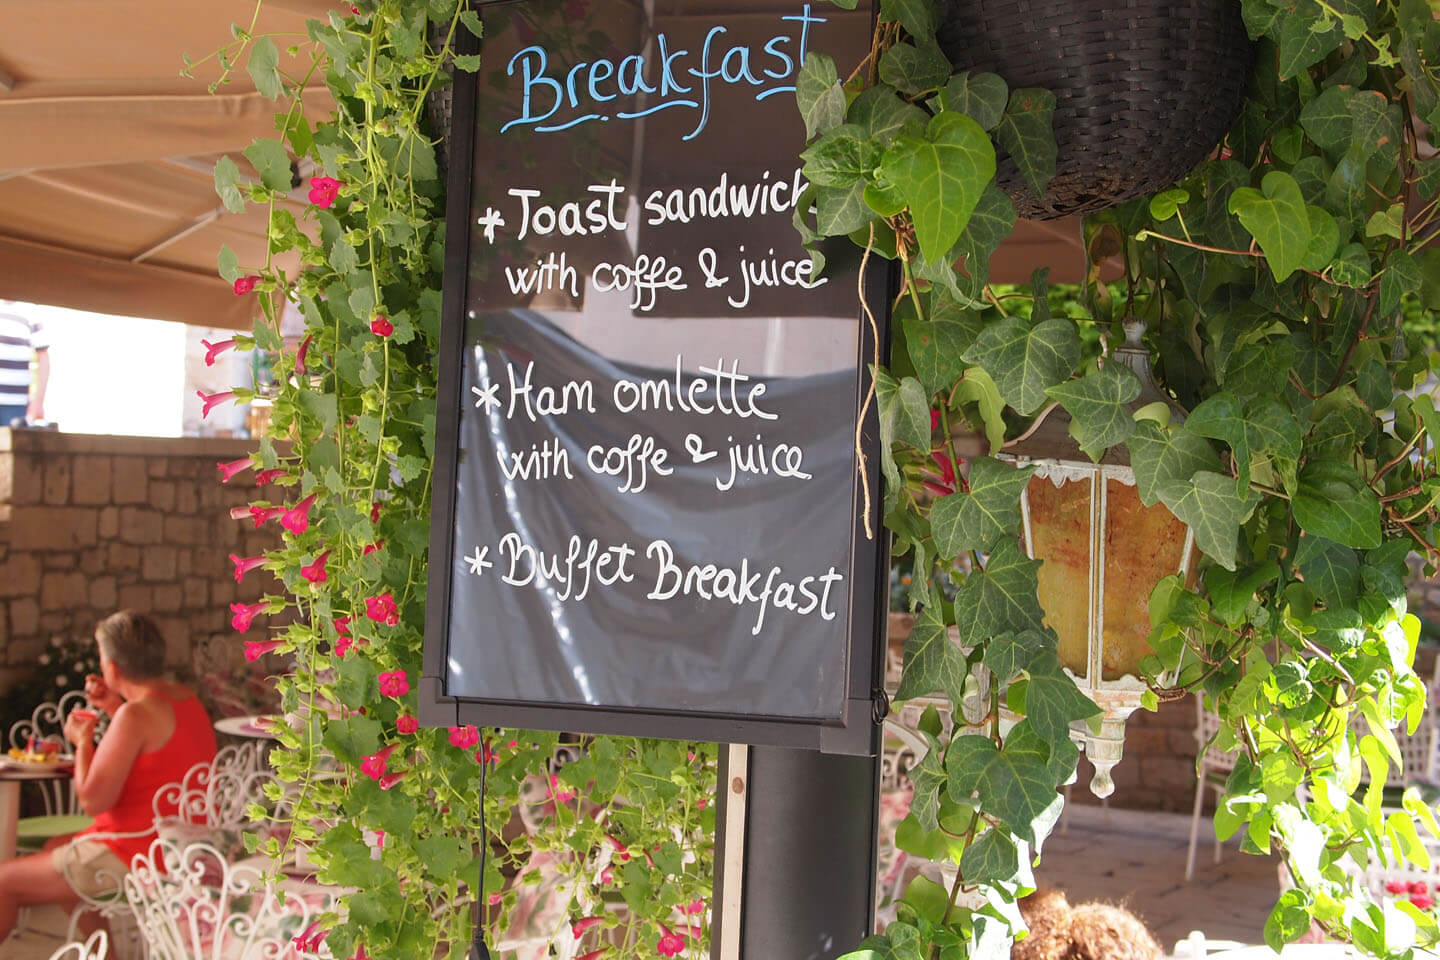 Breakfast
* Toast sandwich
with coffe & juice
* Ham omlette
with coffe & juice
* Buffet Breakfast